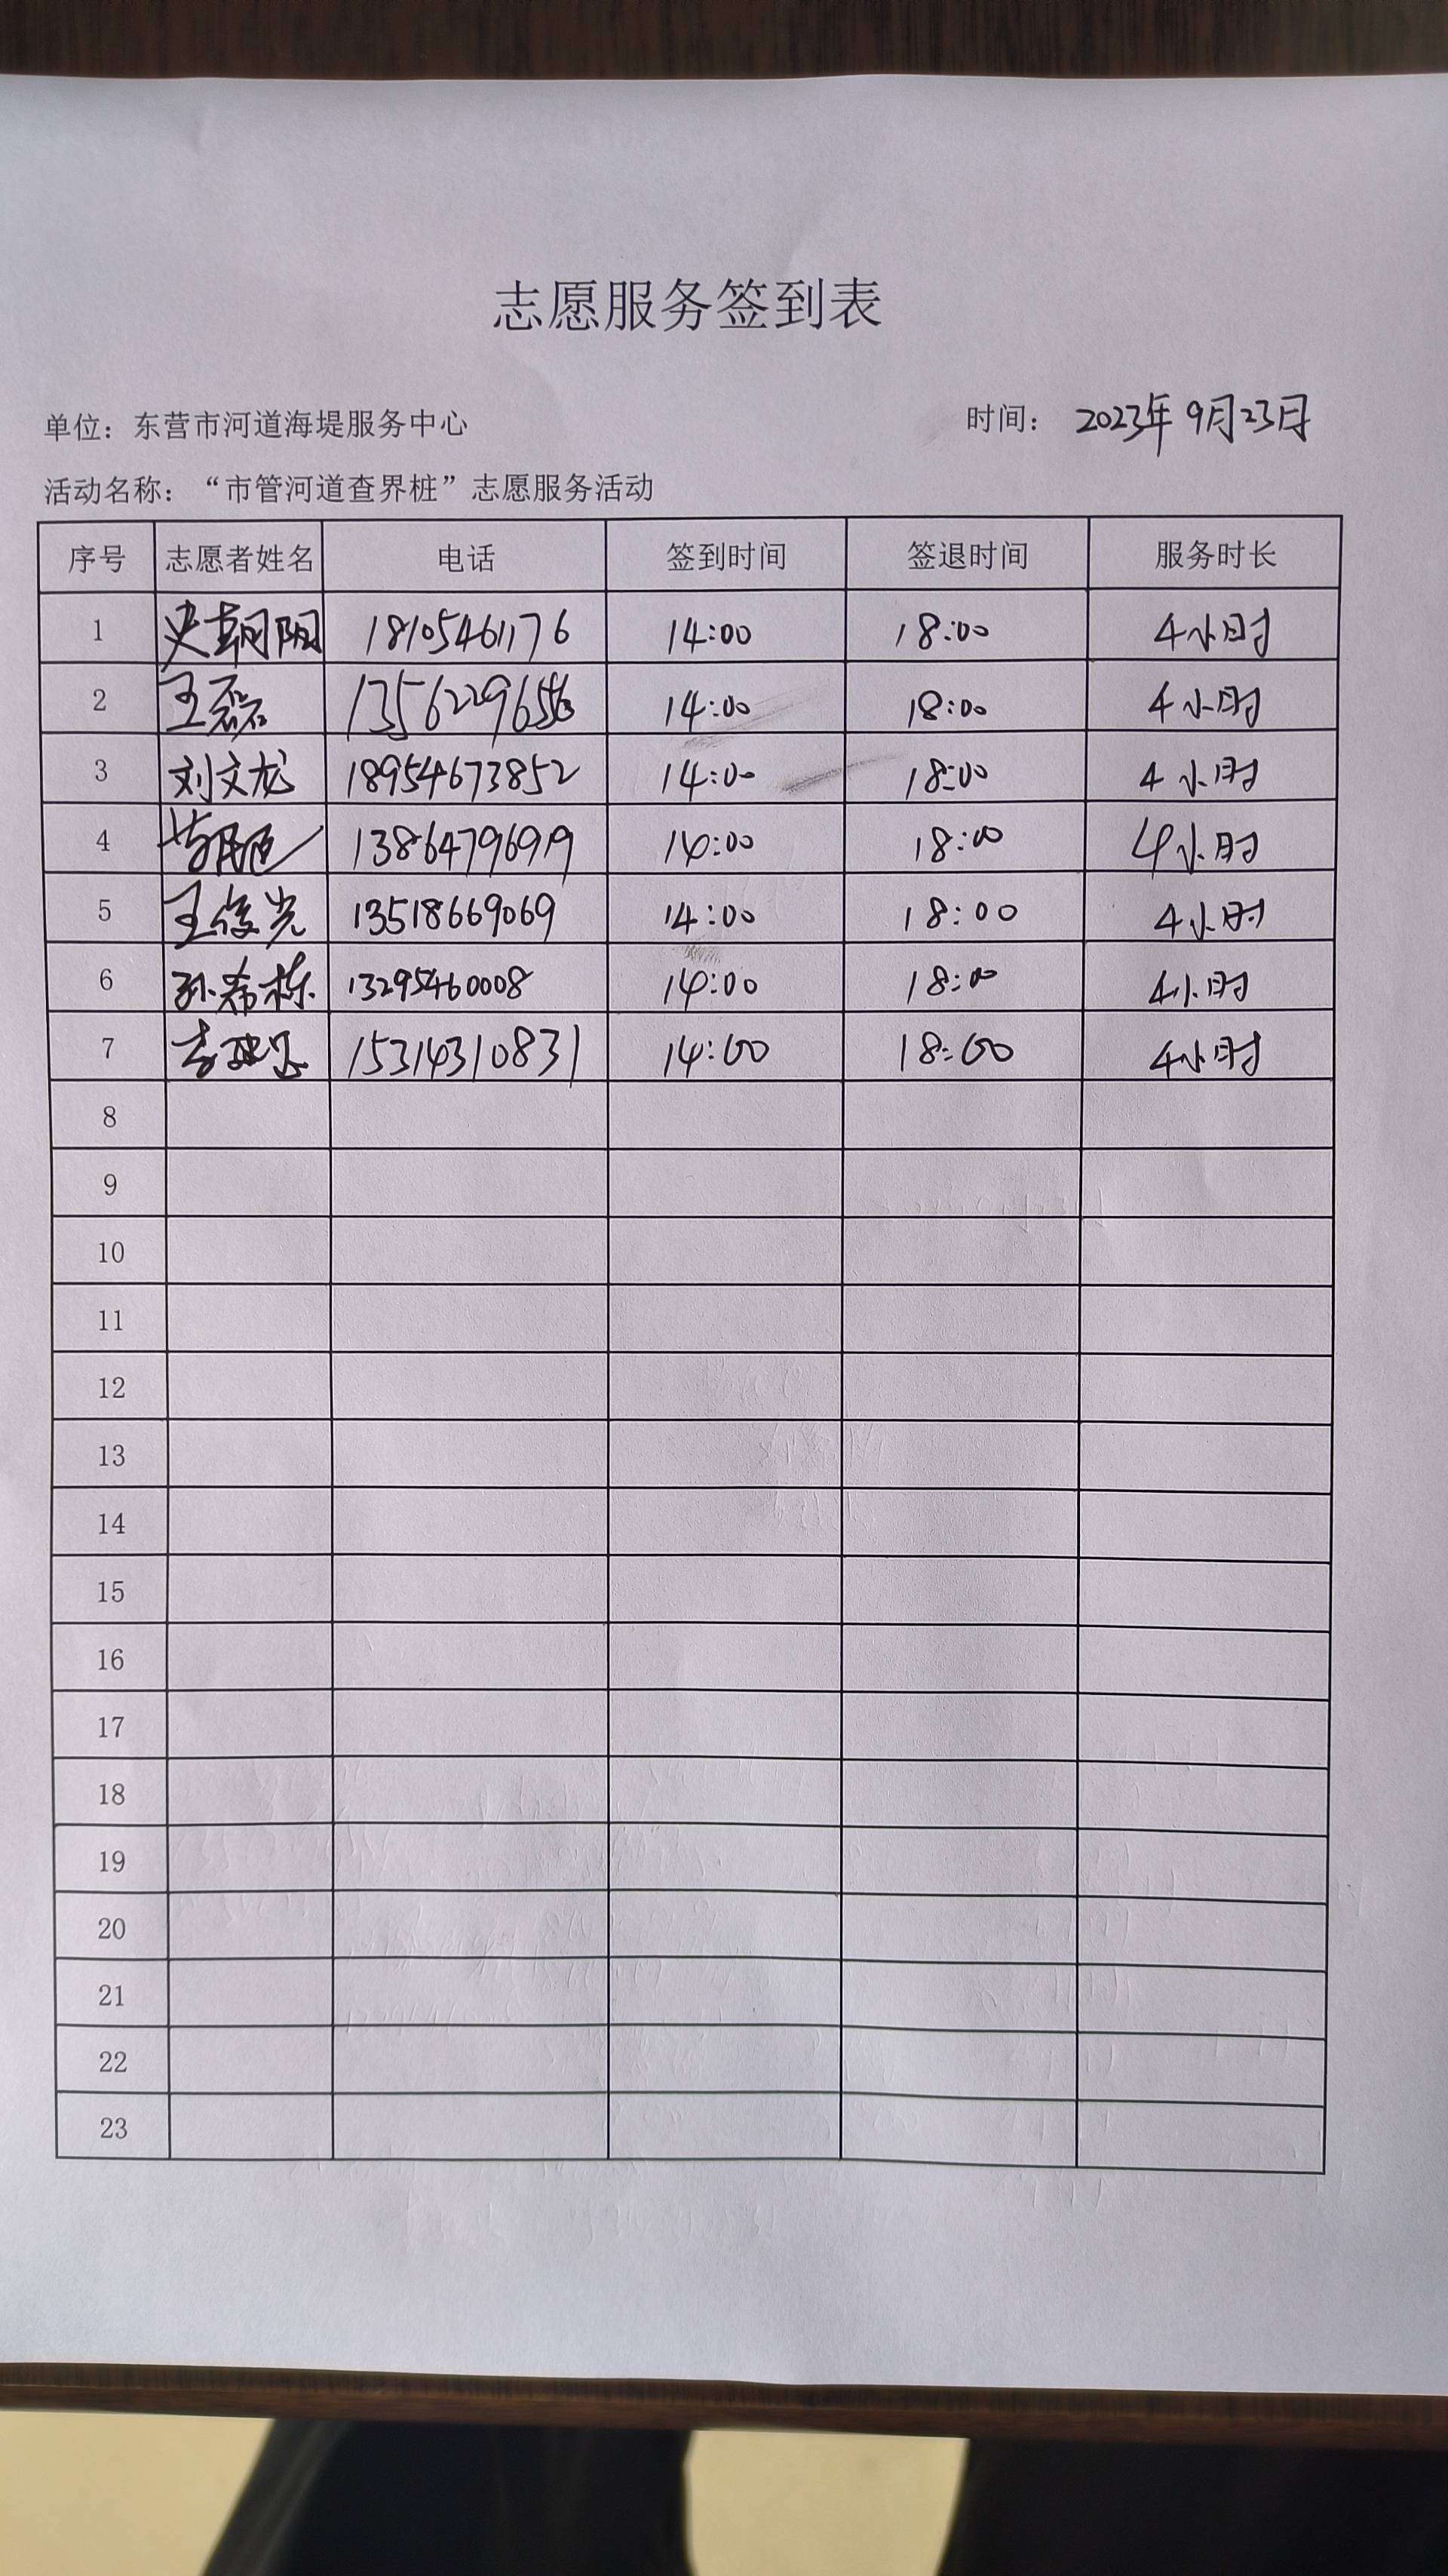 志愿服务签到表
单位：东营市河道海堤服务中心 时间：2023年9月23日
活动名称：“市管河道查界桩”志愿服务活动
序号 志愿者姓名 电话 签到时间 签退时间 服务时长
1 史朝阳 18105461176 14:00 18:00 4小时
2 王磊 14:00 18:00 4小时
3 刘文龙 18954673852 14:00 18:00 4小时
4 14:00 18:00 4小时
5 王俊光 13518669069 14:00 18:00 4小时
6 孙希栋 13295460008 14:00 18:00 4小时
7 15314310831 14:00 18:00 4小时
8
9
10
11
12
13
14
15
16
17
18
19
20
21
22
23